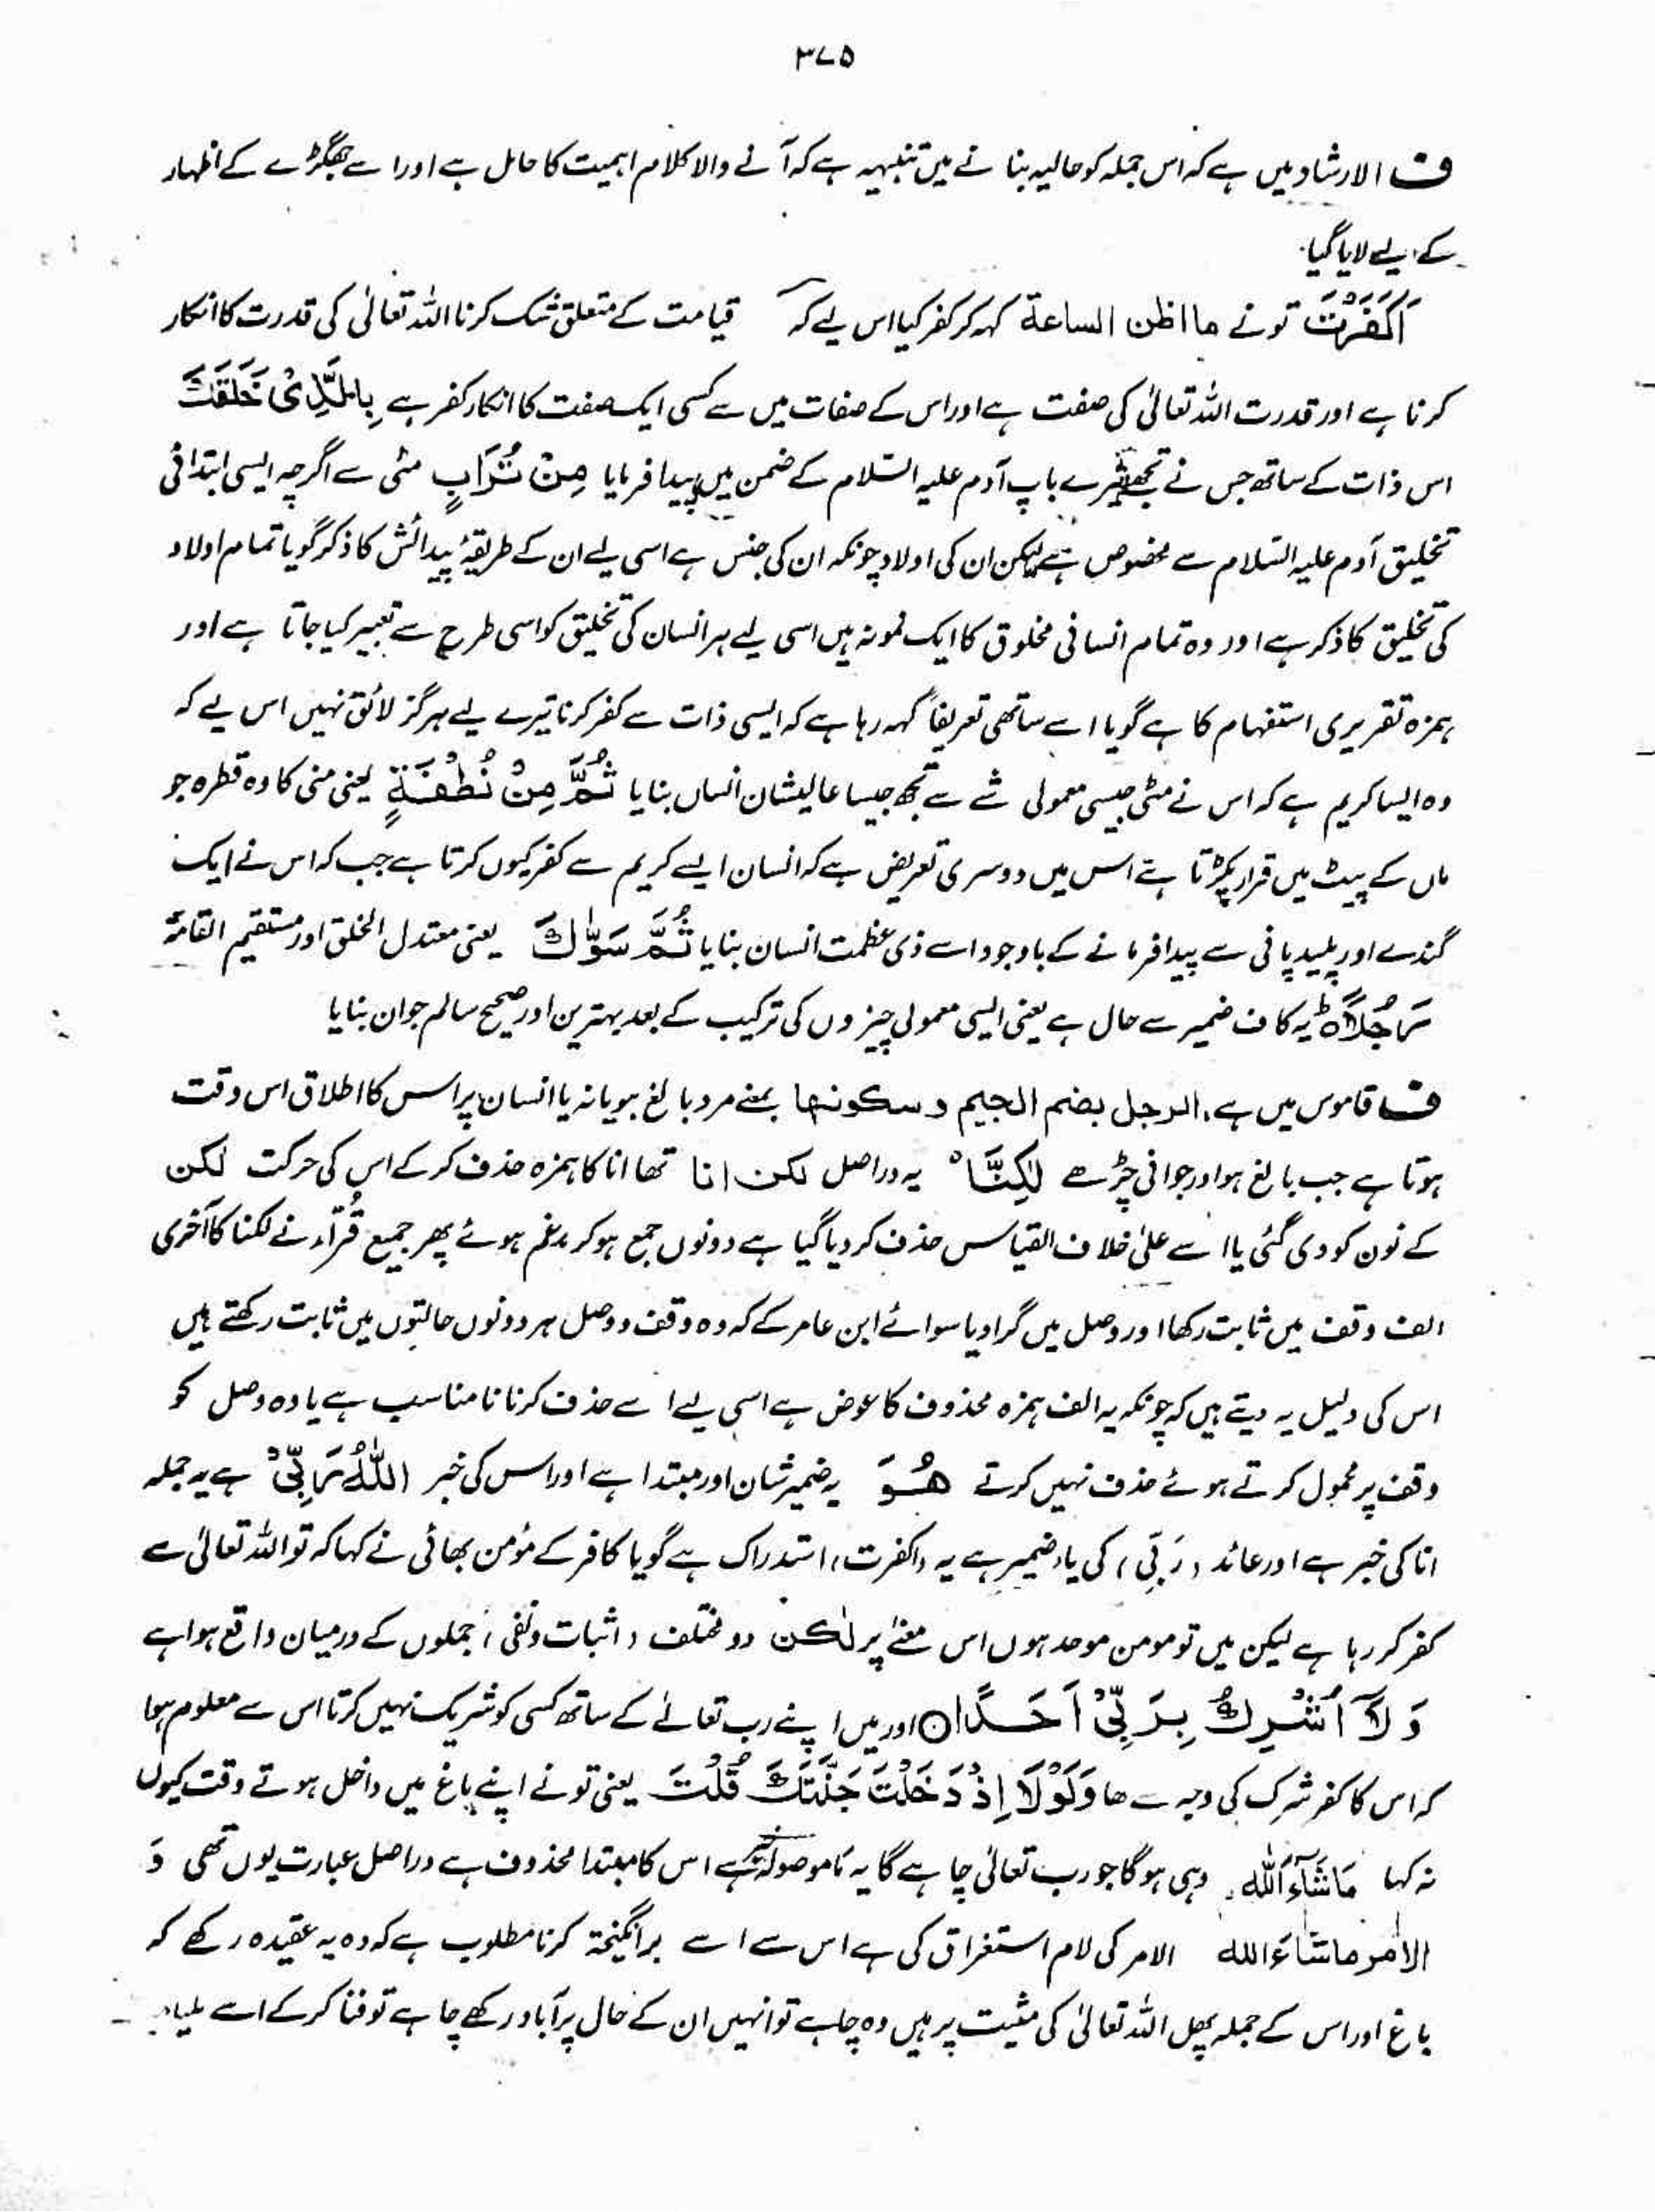 ۳۷۵
ف الارشاد میں ہے کہ اس جملہ کو حالیہ بنا نے میں تنبیہہ ہے کہ آنے والا کلام اہمیت کا حامل ہے اور اسے جھگڑے کے اظہار
کے لیے لایا گیا۔
اَکَفَرْتَ تو نے ما اظن الساعة کہہ کر کفر کیا اس لیے کہ قیامت کے متعلق شک کرنا اللہ تعالیٰ کی قدرت کا انکار
کرنا ہے اور قدرت اللہ تعالیٰ کی صفت ہے اور اس کے صفات میں سے کسی ایک صفت کا انکار کفر ہے بِالَّذِیْ خَلَقَكَ
اس ذات کے ساتھ جس نے تجھے تیرے باپ آدم علیہ السّلام کے ضمن میں پیدا فرمایا مِنْ تُرَابٍ مٹی سے اگرچہ ایسی ابتدائی
تخلیق آدم علیہ السّلام سے مخصوص ہے لیکن ان کی اولاد چونکہ ان کی جنس ہے اسی لیے ان کے طریقۂ پیدائش کا ذکر گویا تمام اولاد
کی تخلیق کا ذکر ہے اور وہ تمام انسانی مخلوق کا ایک نمونہ ہیں اسی لیے ہر انسان کی تخلیق کو اسی طرح سے تعبیر کیا جاتا ہے اور
ہمزہ تقریری استفہام کا ہے گویا اسے ساتھی تعریفاً کہہ رہا ہے کہ ایسی ذات سے کفر کرنا تیرے لیے ہرگز لائق نہیں اس لیے کہ
وہ ایسا کریم ہے کہ اس نے مٹی جیسی معمولی شے سے تجھ جیسا عالیشان انسان بنایا ثُمَّ مِنْ نُطْفَةٍ یعنی منی کا وہ قطرہ جو
ماں کے پیٹ میں قرار پکڑتا ہے اس میں دوسری تعریض ہے کہ انسان ایسے کریم سے کفر کیوں کرتا ہے جب کہ اس نے ایک
گندے اور پلید پانی سے پیدا فرمانے کے باوجود اسے ذی عظمت انسان بنایا ثُمَّ سَوّٰكَ یعنی معتدل الخلق اور مستقیم القامۃ
رَجُلًا ؕ یہ کاف ضمیر سے حال ہے یعنی ایسی معمولی چیزوں کی ترکیب کے بعد بہترین اور صحیح سالم جوان بنایا
ف قاموس میں ہے، الرجل بضم الجیم و سکونہا بمعنے مرد بالغ ہو یا نہ یا انسان پر اس کا اطلاق اس وقت
ہوتا ہے جب بالغ ہو اور جوانی چڑھے لٰکِنَّا۠ یہ دراصل لکن انا تھا انا کا ہمزہ حذف کر کے اس کی حرکت لکن
کے نون کو دی گئی یا اسے علیٰ خلاف القیاس حذف کر دیا گیا ہے دونوں جمع ہو کر مدغم ہوئے پھر جمیع قُرّاء نے لکنا کا آخری
الف وقف میں ثابت رکھا اور وصل میں گرا دیا سوائے ابن عامر کے کہ وہ وقف و وصل ہر دونوں حالتوں میں ثابت رکھتے ہیں
اس کی دلیل یہ دیتے ہیں کہ چونکہ یہ الف ہمزہ محذوف کا عوض ہے اسی لیے اسے حذف کرنا نامناسب ہے یا وہ وصل کو
وقف پر محمول کرتے ہوئے حذف نہیں کرتے هُوَ یہ ضمیر شان اور مبتدا ہے اور اس کی خبر اللّٰهُ رَبِّیْ ہے یہ جملہ
انا کی خبر ہے اور عائد (رَبِّی) کی یاء ضمیر ہے یہ (اکفرت) استدراک ہے گویا کافر کے مؤمن بھائی نے کہا کہ تو اللہ تعالیٰ سے
کفر کر رہا ہے لیکن میں تو مومن موحد ہوں اس معنےٰ پر لٰکن دو مختلف (اثبات و نفی) جملوں کے درمیان واقع ہوا ہے
وَلَاۤ اُشْرِكُ بِرَبِّیْۤ اَحَدًا ○ اور میں اپنے رب تعالےٰ کے ساتھ کسی کو شریک نہیں کرتا اس سے معلوم ہوا
کہ اس کا کفر شرک کی وجہ سے تھا وَلَوْلَاۤ اِذْ دَخَلْتَ جَنَّتَكَ قُلْتَ یعنی تو نے اپنے باغ میں داخل ہوتے وقت کیوں
نہ کہا مَاشَآءَ اللّٰهُ وہی ہوگا جو رب تعالیٰ چاہے گا یہ مَا موصولہ خبر ہے اس کا مبتدا محذوف ہے دراصل عبارت یوں تھی وَ
الامر ماشاءَ الله الامر کی لام استغراق کی ہے اس سے اسے برانگیختہ کرنا مطلوب ہے کہ وہ یہ عقیدہ رکھے کہ
باغ اور اس کے جملہ پھل اللہ تعالیٰ کی مشیت پر ہیں وہ چاہے تو انہیں ان کے حال پر آباد رکھے چاہے تو فنا کر کے اسے